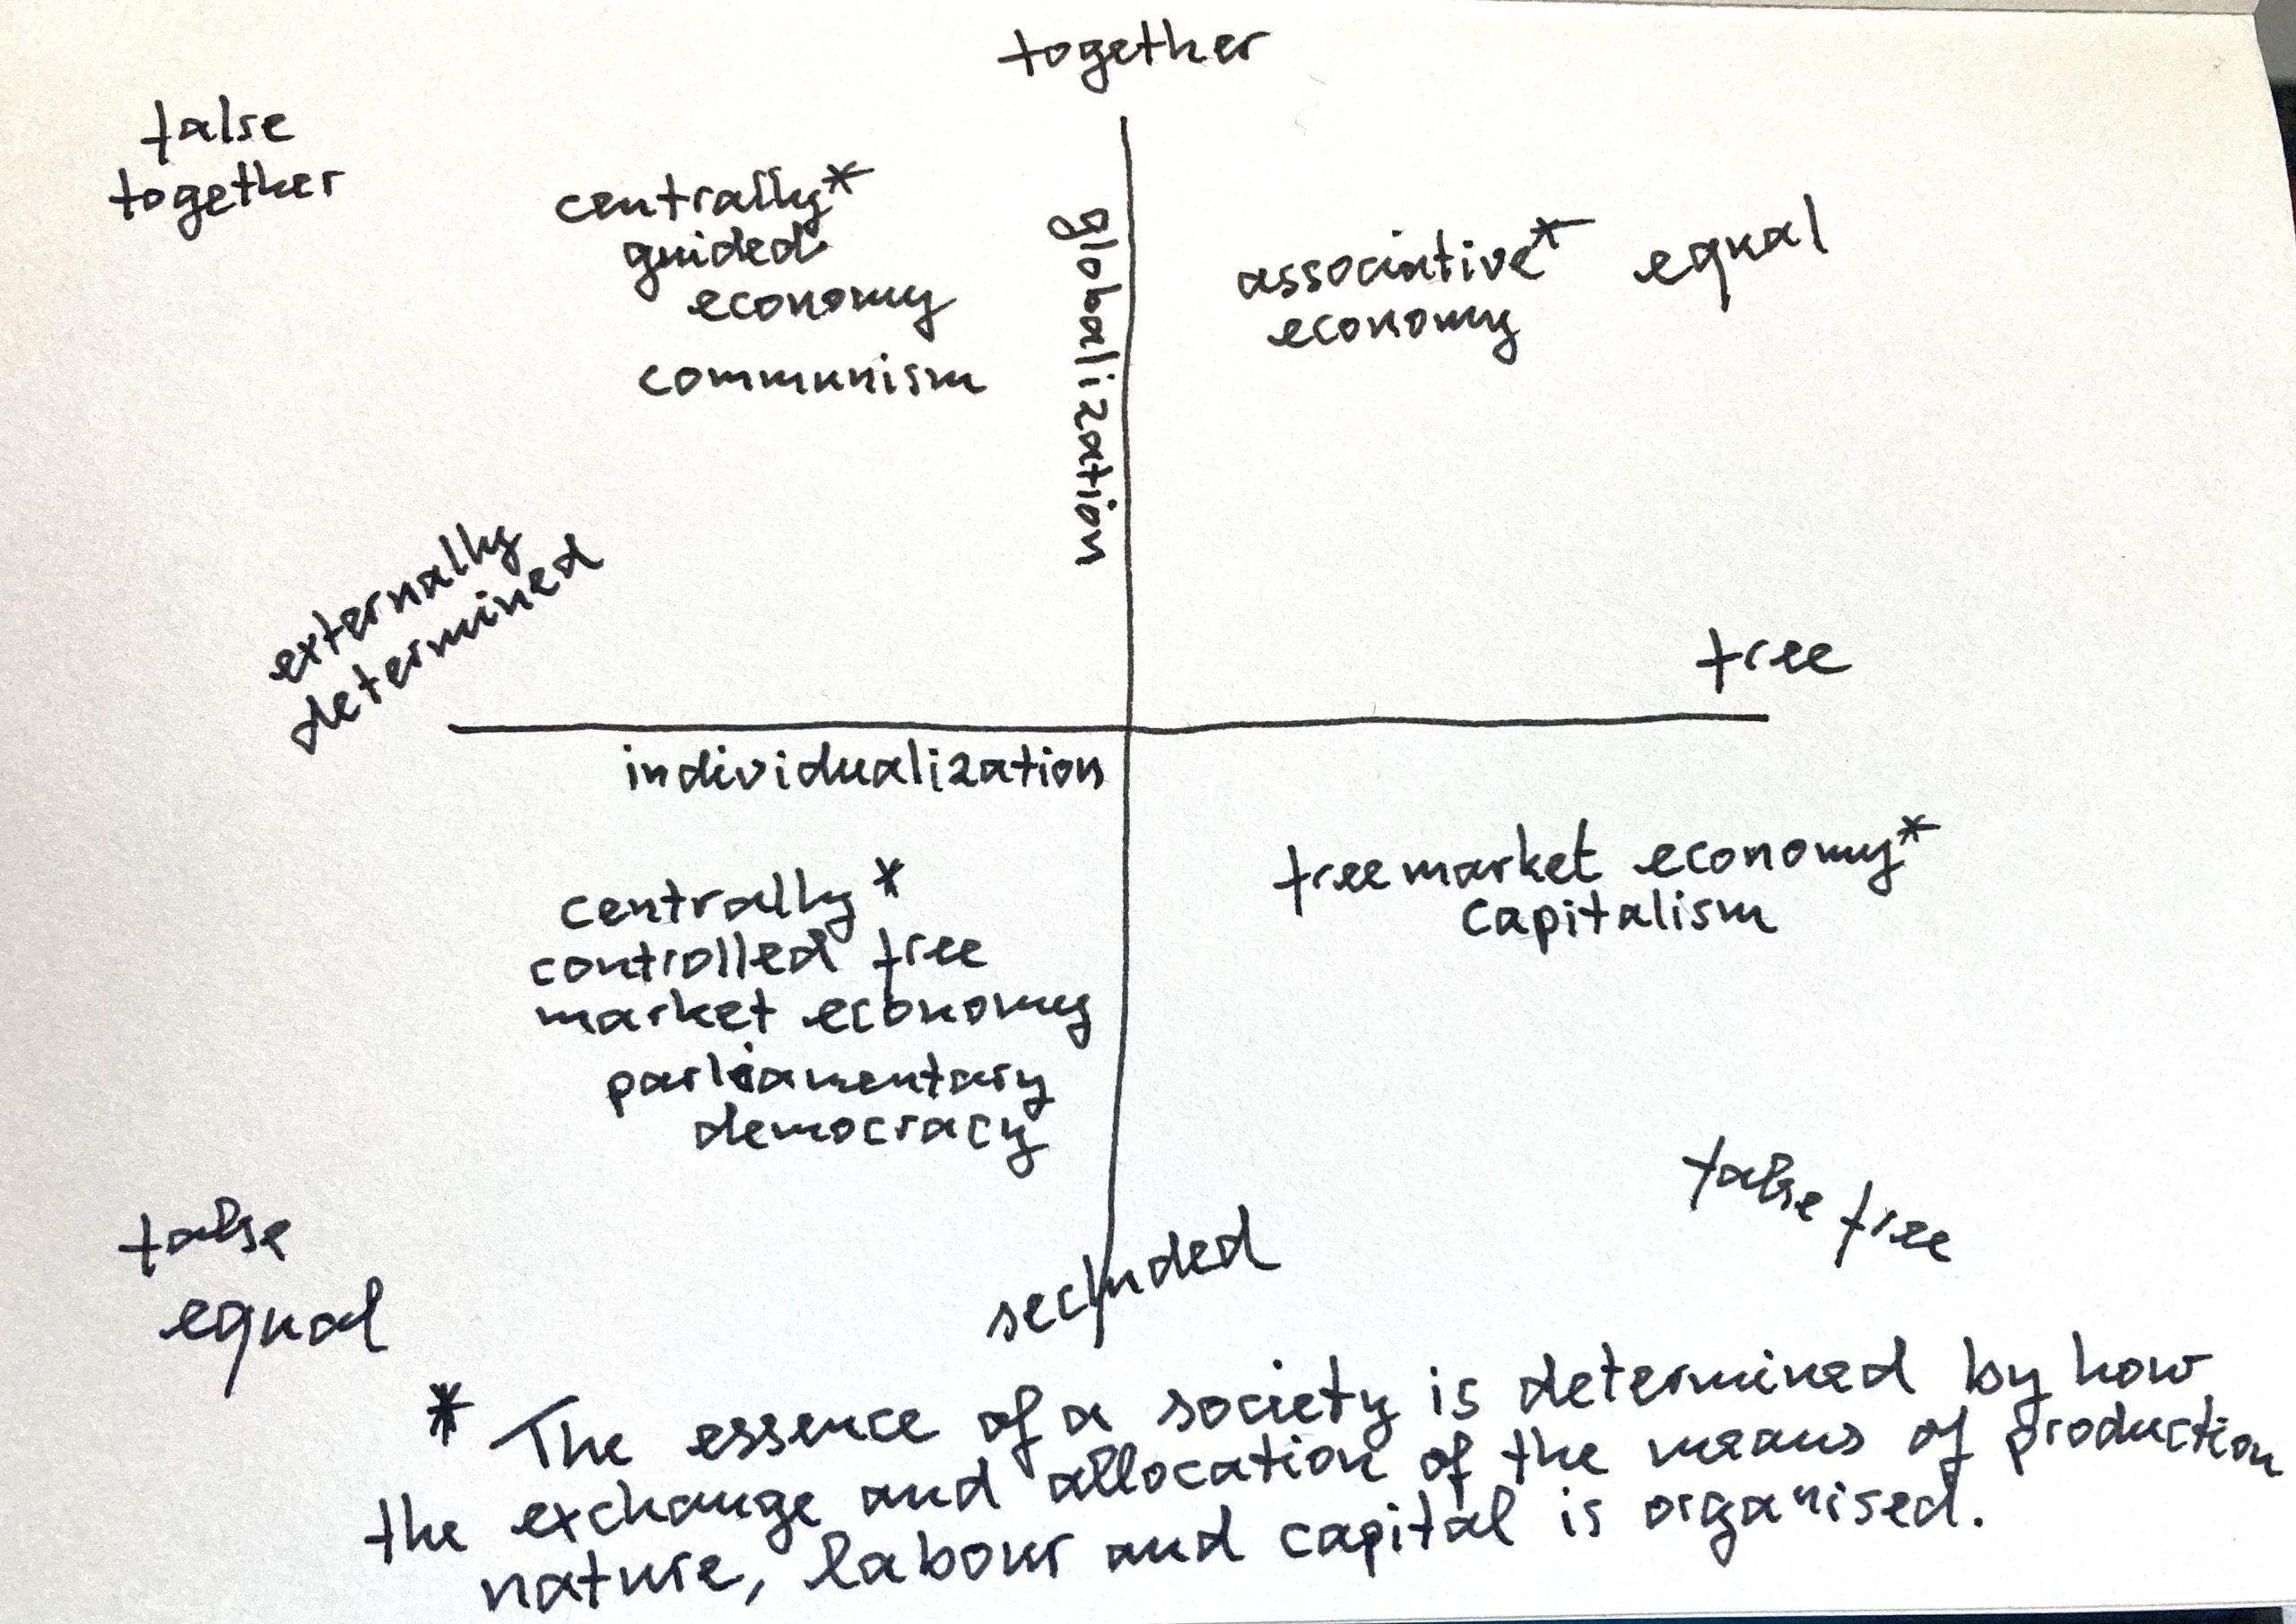 together
false
together
centrally*
guided
economy
communism
globalization
associative*
economy
equal
externally
determined
free
individualization
centrally*
controlled free
market economy
parliamentary
democracy
free market economy*
capitalism
false
equal
secluded
false free
* The essence of a society is determined by how
the exchange and allocation of the means of production
nature, labour and capital is organised.